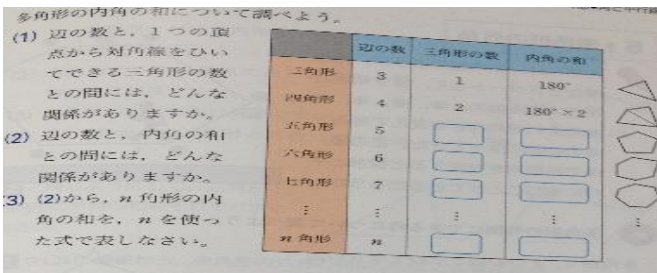 多角形の内角の和について調べよう。
(1) 辺の数と，1つの頂
点から対角線をひい
てできる三角形の数
との間には，どんな
関係がありますか。
(2) 辺の数と，内角の和
との間には，どんな
関係がありますか。
(3) (2)から，n角形の内
角の和を，nを使っ
た式で表しなさい。
辺の数 三角形の数 内角の和
三角形 3 1 180°
四角形 4 2 180°×2
五角形 5
六角形 6
七角形 7
⋮ ⋮ ⋮ ⋮ ⋮
n角形 n